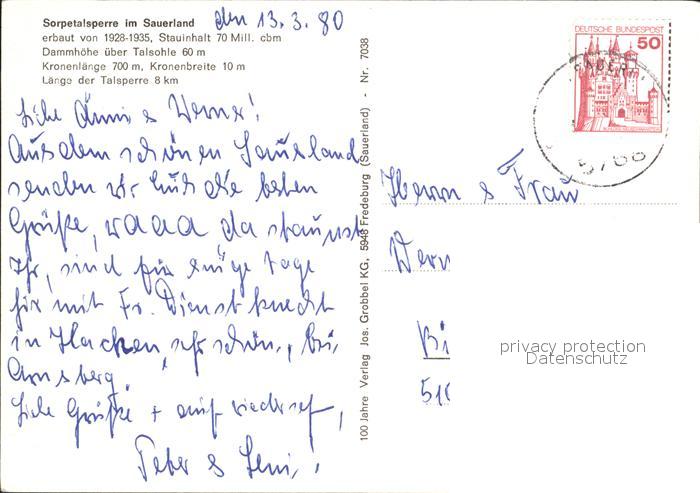 Sorpetalsperre im Sauerland
erbaut von 1928-1935, Stauinhalt 70 Mill. cbm
Dammhöhe über Talsohle 60 m
Kronenlänge 700 m, Kronenbreite 10 m
Länge der Talsperre 8 km
den 13.3.80
Liebe Änni & Werner!
Aus dem schönen Sauerland
senden wir Euch die besten
Grüße, waaa da staunst
Ihr, sind für einige Tage
hir mit Fr. Dienstknecht
in Hachen, sehr schön, bei
Arnsberg.
Liebe Grüße + auf
Peter & Leni!
100 Jahre Verlag Jos. Grobbel KG, 5948 Fredeburg (Sauerland) - Nr. 7038
DEUTSCHE BUNDESPOST
50
5768
Herrn & Frau
Wern
Bi
510
privacy protection
Datenschutz